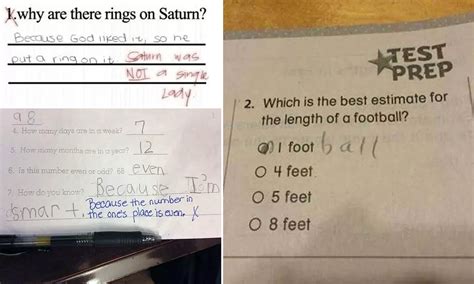 1. why are there rings on Saturn?
Because God liked it, so he
put a ring on it. Saturn was
NOT a single
Lady.
98
4. How many days are in a week? 7
5. How many months are in a year? 12
6. Is this number even or odd? 68 even
7. How do you know? Because I'm
smart. Because the number in
the one's place is even. X
TEST
PREP
2. Which is the best estimate for
the length of a football?
1 foot ball
4 feet
5 feet
8 feet